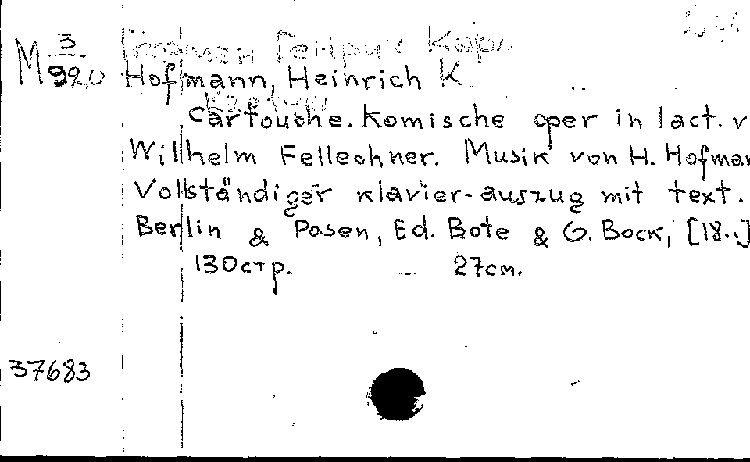 М 3/920
Гофман Генрих Карл
Hofmann, Heinrich K
Cartouche. Komische oper in 1 act. v
Wilhelm Fellechner. Musik von H. Hofman
Vollständiger klavier-auszug mit text.
Berlin & Posen, Ed. Bote & G. Bock, [18..]
130 стр. — 27 см.
37683